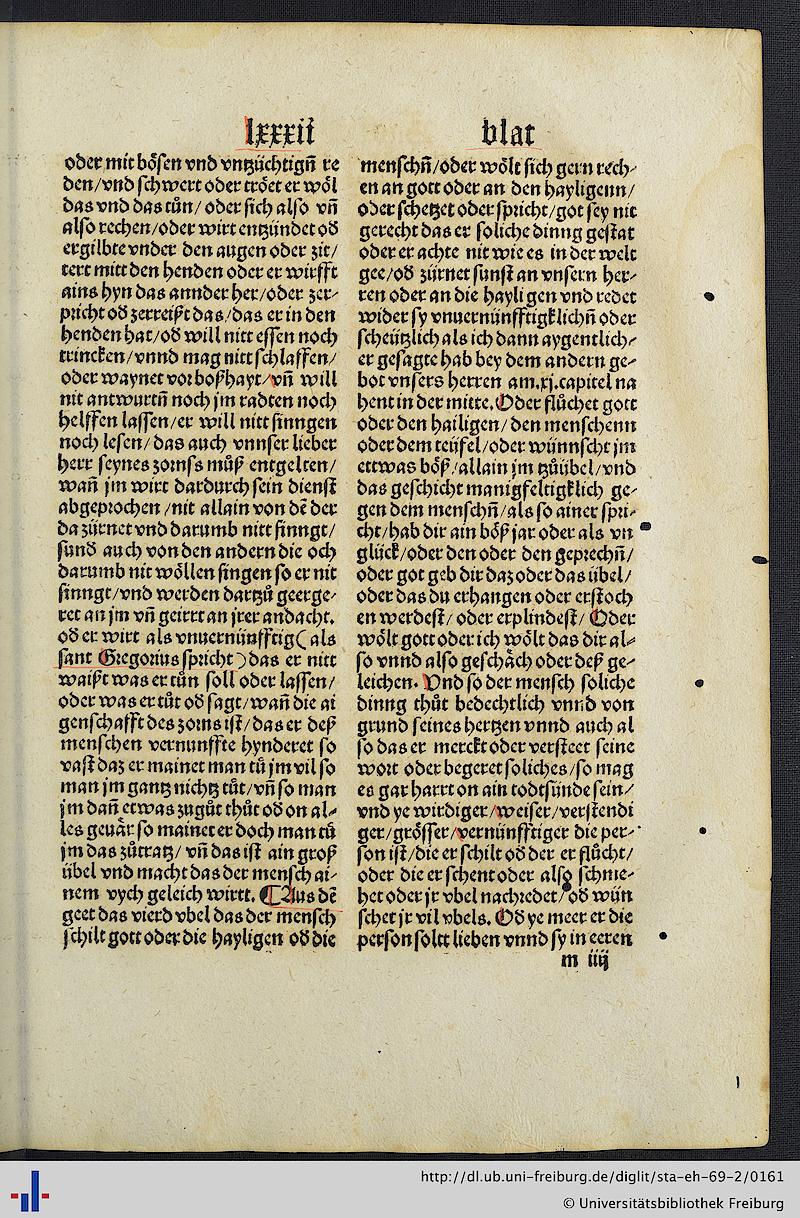 lxxxii blat
oder mit bösen vnd vntzüchtigñ re
den/vnd schwert oder tröet er wöl
das vnd das tůn/ oder sich also vñ
also rechen/oder wirt entzündet od
ergilbt vnder den augen oder zit/
tert mitt den henden oder er wirfft
ains hyn das annder her/oder zer-
pricht od zerreißt das/das er in den
henden hat/od will nitt essen noch
trincken/vnnd mag nitt schlaffen/
oder waynet vor boßhayt/vñ will
nit antwurtñ noch jm radten noch
helffen lassen/er will nitt singen
noch lesen/das auch vnnser lieber
herr seynes zornss můß entgelten/
wañ jm wirt dardurch sein dienst
abgeprochen/nit allain von dē der
da zürnet vnd darumb nitt singt/
sund auch von den andern die och
darumb nit wöllen singen so er nit
sinngt/vnd werden dartzů geerge-
ret an jm vñ geirrt an jrer andacht.
od er wirt als vnuernünfftig(als
sant Gregorius spricht)das er nitt
waißt was er tůn soll oder lassen/
oder was er tůt od sagt/wañ die ai
genschafft des zorns ist/das er deß
menschen vernunffte hynderet so
vast daz er mainet man tů jm vil so
man jm gantz nichtz tůt/vñ so man
jm dañ etwas zugůt thůt od on al-
les geuär so mainet er doch man tů
jm das zůtratz/ vñ das ist ain groß
übel vnd macht das der mensch ai-
nem vych geleich wirtt. ¶Aus dē
geet das vierd vbel das der mensch
schilt gott oder die hayligen od die
menschñ/oder wölt sich gern rech-
en an gott oder an den hayligenn/
oder schetzet oder spricht/got sey nit
gerecht das er soliche dinng gestat
oder er achte nit wie es in der welt
gee/od zürnet sunst an vnsern her-
ren oder an die hayligen vnd redet
wider sy vnuernünfftigklichñ oder
scheützlich als ich dann aygentlich-
er gesagte hab bey dem andern ge-
bot vnsers herren am.xj.capitel na
hent in der mitte.Oder flůchet gott
oder den hailigen/ den menschenn
oder dem teüfel/oder wünnscht jm
ettwas böß/allain jm tzůübel/vnd
das geschicht manigfeltigklich ge-
gen dem menschñ/als so ainer spri-
cht/hab dir ain böß jar oder als vn
glück/oder den oder den geprechñ/
oder got geb dir daz oder das übel/
oder das du erhangen oder erstoch
en werdest/ oder erplindest/ Oder
wölt gott oder ich wölt das dir al-
so vnnd also geschäch oder deß ge-
leichen. Vnd so der mensch soliche
dinng thůt bedechtlich vnnd von
grund seines hertzen vnnd auch al
so das er merckt oder versteet seine
wort oder begeret soliches/so mag
es gar harrt on ain todtsünde sein/
vnd ye wirdiger/weiser/verstendi
ger/grösser/vernünfftiger die per-
son ist/die er schilt od der er flůcht/
oder die er schent oder also schme-
het oder jr vbel nachredet/od wün
schet jr vil vbels. Od ye meer er die
person soltt lieben vnnd sy in eeren
m iiij
http://dl.ub.uni-freiburg.de/diglit/sta-eh-69-2/0161
© Universitätsbibliothek Freiburg